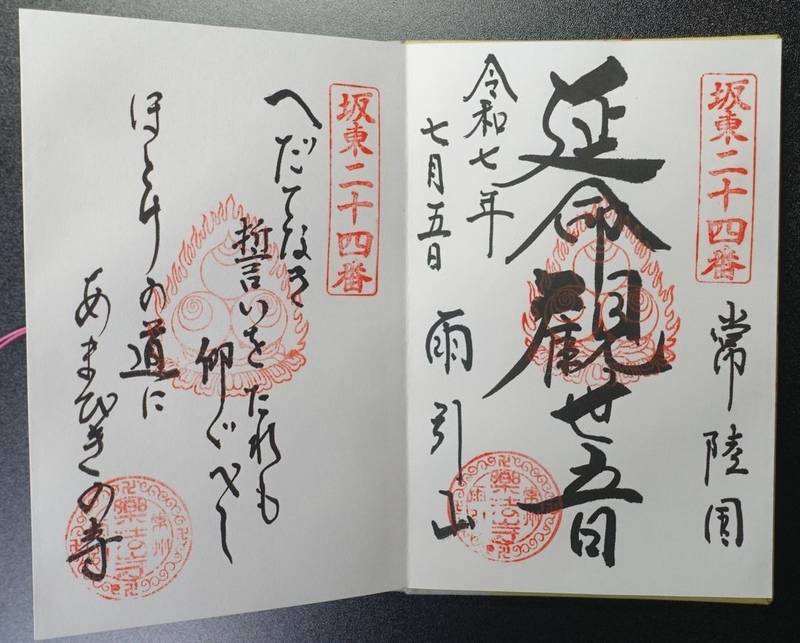 坂東二十四番
常陸国
延命観世音
雨引山
令和七年
七月五日
常州
雨引
樂法寺
坂東二十四番
へだてなき
誓いをたれも
仰ぐべし
ほとけの道に
あまびきの寺
常州
樂法寺